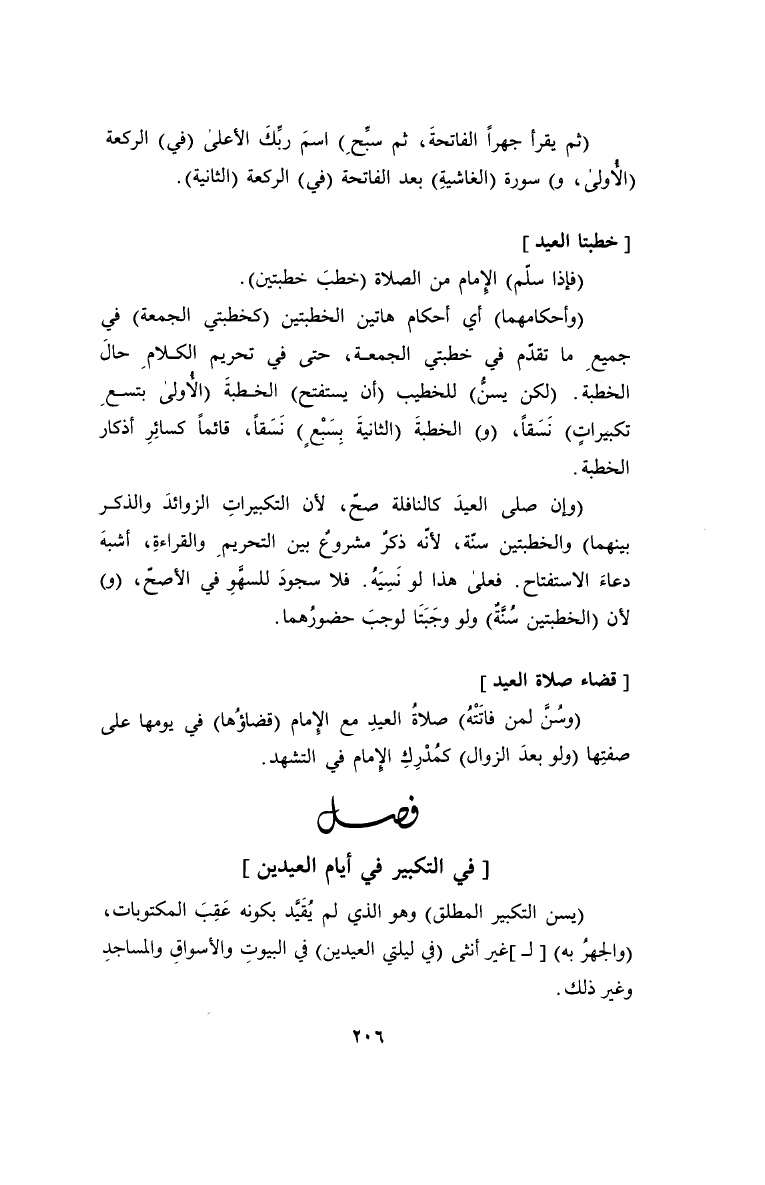 (ثم يقرأ جهراً الفاتحةَ، ثم سبِّح ِ) اسمَ ربِّكَ الأعلىٰ (في) الركعة
(الأُولىٰ، و) سورة (الغاشيةِ) بعد الفاتحة (في) الركعة (الثانية).
[ خطبتا العيد ]
(فإذا سلّم) الإمام من الصلاة (خطبَ خطبتين).
(وأحكامهما) أي أحكام هاتين الخطبتين (كخطبتي الجمعة) في
جميع ِ ما تقدّم في خطبتي الجمعـة، حتى في تحريم الكـلام ِ حالَ
الخطبة. (لكن يسنُّ) للخطيب (أن يستفتح) الخـطبةَ (الأُولىٰ بتسـع ِ
تكبيراتٍ) نَسَقاً، (و) الخطبةَ (الثانيةَ بِسَبْع ٍ) نَسَقاً، قائماً كسائِرِ أذكار
الخطبة.
(وإن صلى العيدَ كالنافلة صحّ، لأن التكبيراتِ الزوائدَ والذكـر
بينهما) والخطبتين سنّة، لأنّه ذكرٌ مشروعٌ بين التحريم ِ والقراءةِ، أشبهَ
دعاءَ الاستفتاح. فعلىٰ هذا لو نَسِيَهُ. فلا سجودَ للسهَّوِ في الأصحّ، (و)
لأن (الخطبتين سُنَّةٌ) ولو وجَبَتَا لوجبَ حضورُهما.
[ قضاء صلاة العيد ]
(وسُنَّ لمن فاتَتْهُ) صلاةُ العيدِ مع الإمام (قضاؤُها) في يومها على
صفتِها (ولو بعدَ الزوال) كمُدْرِكِ الإمام في التشهد.
فصـل
[ في التكبير في أيام العيدين ]
(يسن التكبير المطلق) وهو الذي لم يُقَيَّد بكونه عَقِبَ المكتوبات،
(والجهرُ به) [ لـ ]غير أنثى (في ليلتي العيدين) في البيوتِ والأسواقِ والمساجدِ
وغير ذلك.
٢٠٦